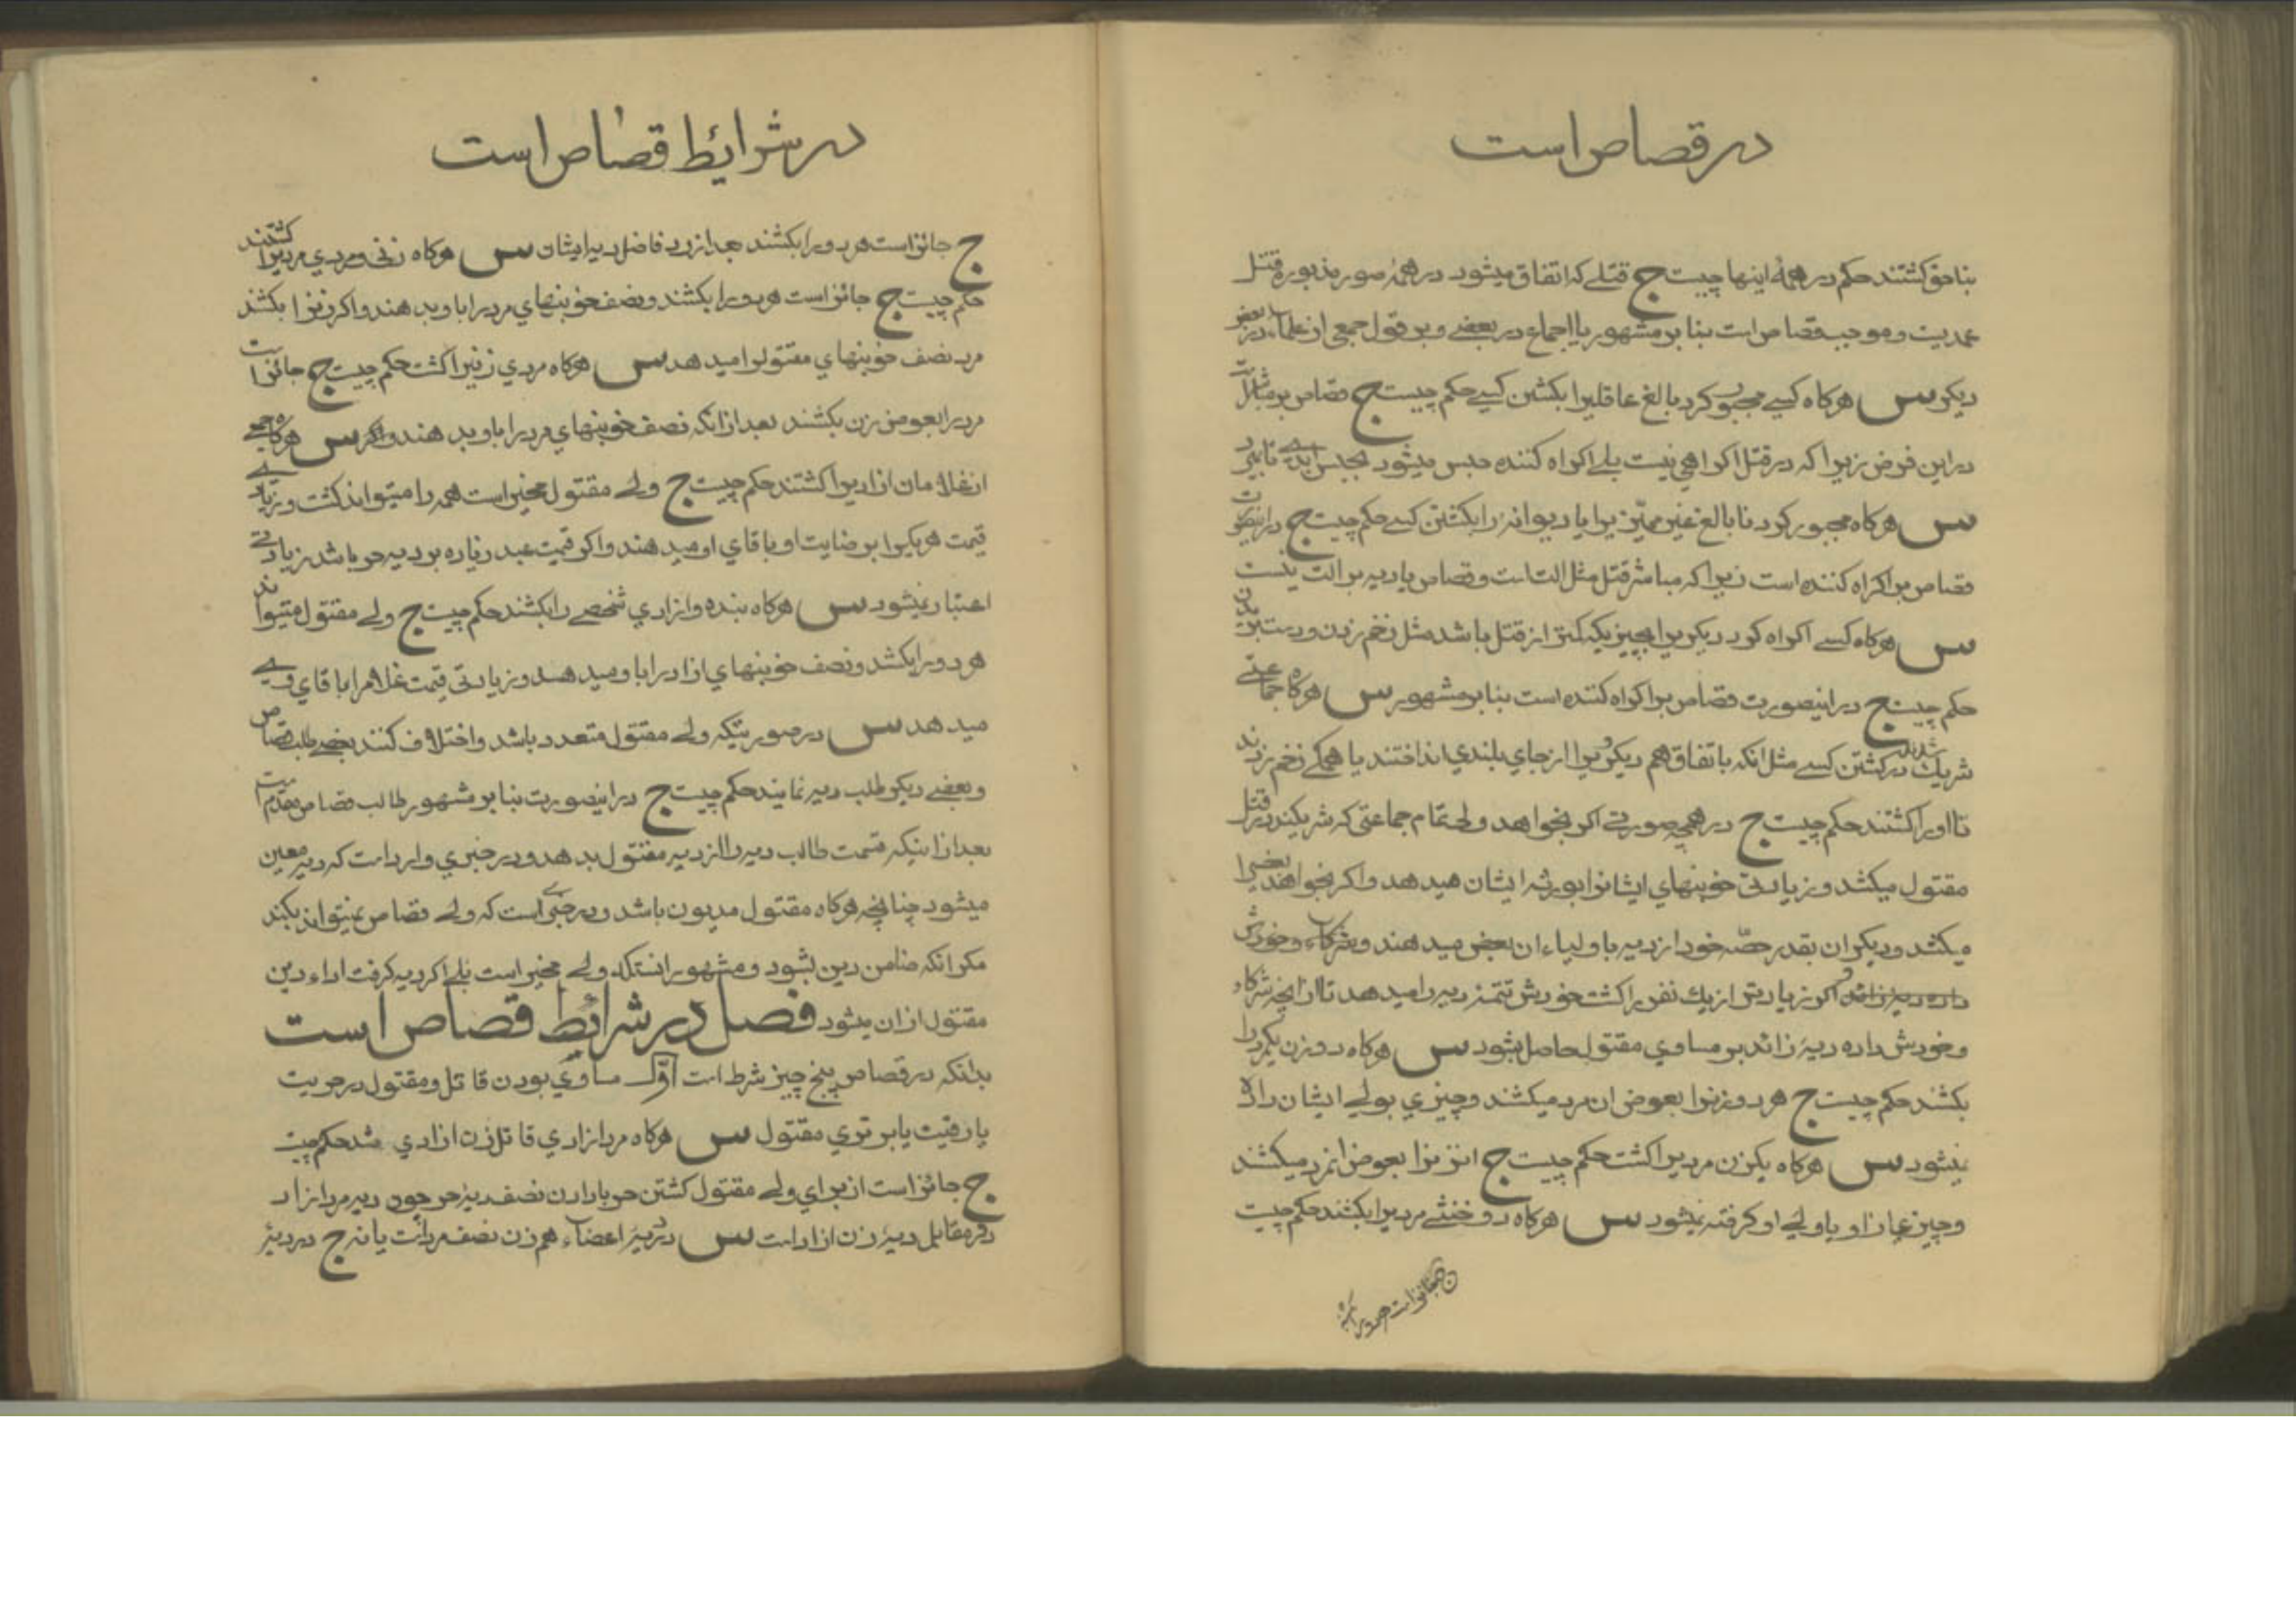 در قصاص است
بناحق کشتند حکم در همهٔ اینها چیست ج قتلے که اتفاق میشود در همهٔ صور مذبوره قتل
عمدیت و موجب قصاص است بنا بر مشهور یا اجماع در بعضے و بر قول جمعی از علماء در بعض
دیکر س هرکاه کسے مجبور کرد بالغ عاقلیرا بکشتن کسے حکم چیست ج قصاص بر مباشر است
در این فرض زیرا که در قتل اکراهی نیست بلے اکراه کننده حبس میشود بحبس ابدے تا بمیرد
س هرکاه مجبور کرد نابالغ غیر ممیّزیرا یا دیوانهٔ را بکشتن کسے حکم چیست ج در اینصورت
قصاص بر اکراه کننده است زیرا که مباشر قتل مثل الت است و قصاص یا دیه بر الت نیست
س هرکاه کسے اکراه کرد دیکریرا بچیزیکه کمتر از قتل باشد مثل زخم زدن و دست بریدن
حکم چیست ج در اینصورت قصاص بر اکراه کننده است بنا بر مشهور س هرکاه جماعتے
شریک شدند در کشتن کسے مثل انکه باتفاق هم دیکریرا از جای بلندی انداختند یا همکے زخم زدند
تا اورا کشتند حکم چیست ج در همچه صورتے اکر بخواهد ولی تمام جماعتی که شریکند در قتل
مقتول میکشد و زیادتی خونبهای ایشانرا بورثهٔ ایشان میدهد و اکر بخواهد بعضیرا
میکشد و دیکران بقدر حصّهٔ خود از دیه باولیاء ان بعض میدهند و شرکاء و خودش
داده دیهٔ زائد و اکر زیادتر از یک نفس را کشت خودش تتمهٔ دیه را میدهد تا از انچه شرکاء
و خودش داده دیهٔ زائد بر مساوی مقتول حاصل بشود س هرکاه دو زن یکمرد را
بکشند حکم چیست ج هر دو زنرا بعوض ان مرد میکشند و چیزی بولے ایشان داده
نمیشود س هرکاه یکزن مردیرا کشت حکم چیست ج انزنرا بعوض انمرد میکشند
و چیزی از او یا ولی او کرفته نمیشود س هرکاه دو خنثے مردیرا بکشند حکم چیست
ج جائز است هر دو را بکشند
در شرائط قصاص است
ج جائز است هر دو را بکشند بعد از رد فاضل دیهٔ ایشان س هرکاه زنی و مردی مردیرا کشتند
حکم چیست ج جائز است هر دو را بکشند و نصف خونبهای مرد را باو بدهند و اکر زنرا بکشند
مرد نصف خونبهای مقتول را میدهد س هرکاه مردی زنیرا کشت حکم چیست ج جائز است
مرد را بعوض زن بکشند بعد از انکه نصف خونبهای مرد را باو بدهند س هرکاه جمعے
از غلامان ازادیرا کشتند حکم چیست ج ولے مقتول مخیر است همه را میتواند کشت و زیادے
قیمت هریکرا بر ضایت او باقای او میدهند و اکر قیمت عبد زیاده بر دیهٔ حر باشد زیادتے
اعتبار نمیشود س هرکاه بنده و ازادی شخصے را بکشند حکم چیست ج ولے مقتول میتواند
هر دو را بکشد و نصف خونبهای ازاد را باو میدهد و زیادتی قیمت غلام را باقای وے
میدهد س در صورتیکه ولے مقتول متعدد باشد و اختلاف کنند بعضے طلب قصاص
و بعضے دیکر طلب دیه نمایند حکم چیست ج در اینصورت بنا بر مشهور طالب قصاص مقدم است
بعد از اینکه قسمت طالب دیه را از دیه مقتول بدهد و در خبری وارد است که دیه معین
میشود چنانچه هرکاه مقتول مدیون باشد و در خبری است که ولے قصاص نمیتواند بکند
مکر انکه ضامن دین بشود و مشهور انستکه ولے مخیر است بلے اکر دیه کرفت اداء دین
مقتول از ان میشود فصل در شرائط قصاص است
بدانکه در قصاص پنج چیز شرط است اوّل مساوی بودن قاتل و مقتول در حریت
یا رقیت یا برتری مقتول س هرکاه مرد ازادی قاتل زن ازادی شد حکم چیست
ج جائز است از برای ولے مقتول کشتن حر با دادن نصف دیهٔ حر چون دیه مرد ازاد
دو مقابل دیهٔ زن ازاد است س در دیهٔ اعضاء هم زن نصف مرد است یا نه ج در دیهٔ